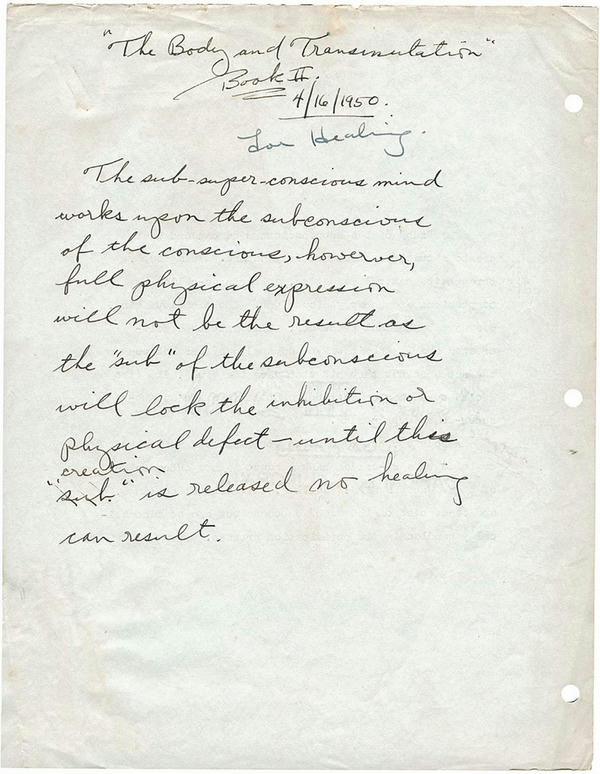 "The Body and Transmutation"
Book II.
4/16/1950.
For Healing.
The sub-super-conscious mind
works upon the subconscious
of the conscious, howerver,
full physical expression
will not be the result as
the "sub" of the subconscious
will lock the inhibition or
physical defect – until this
creation
"sub." is released no healing
can result.